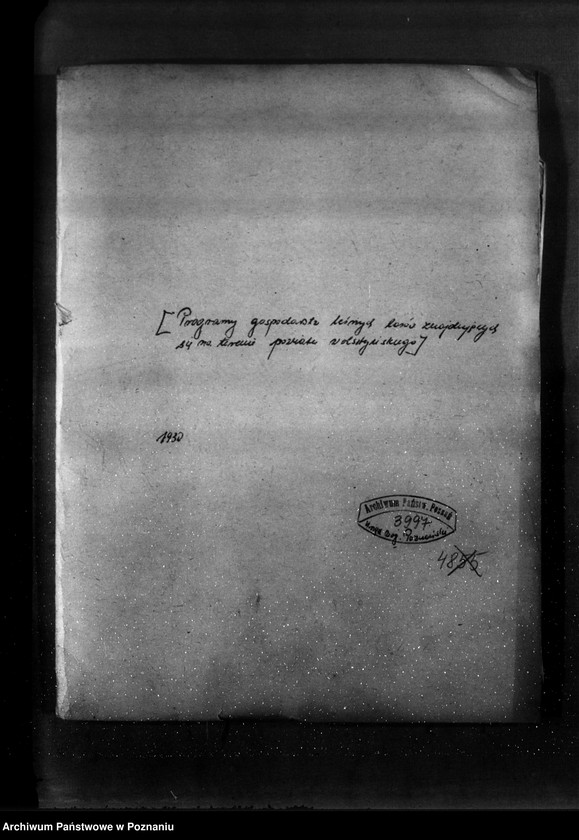 [Programy gospodarstw leśnych lasów znajdujących
się na terenie powiatu wolsztyńskiego]
1930
Archiwum Państw. Poznań
3997
Urząd Woj. Poznański
4855
Archiwum Państwowe w Poznaniu